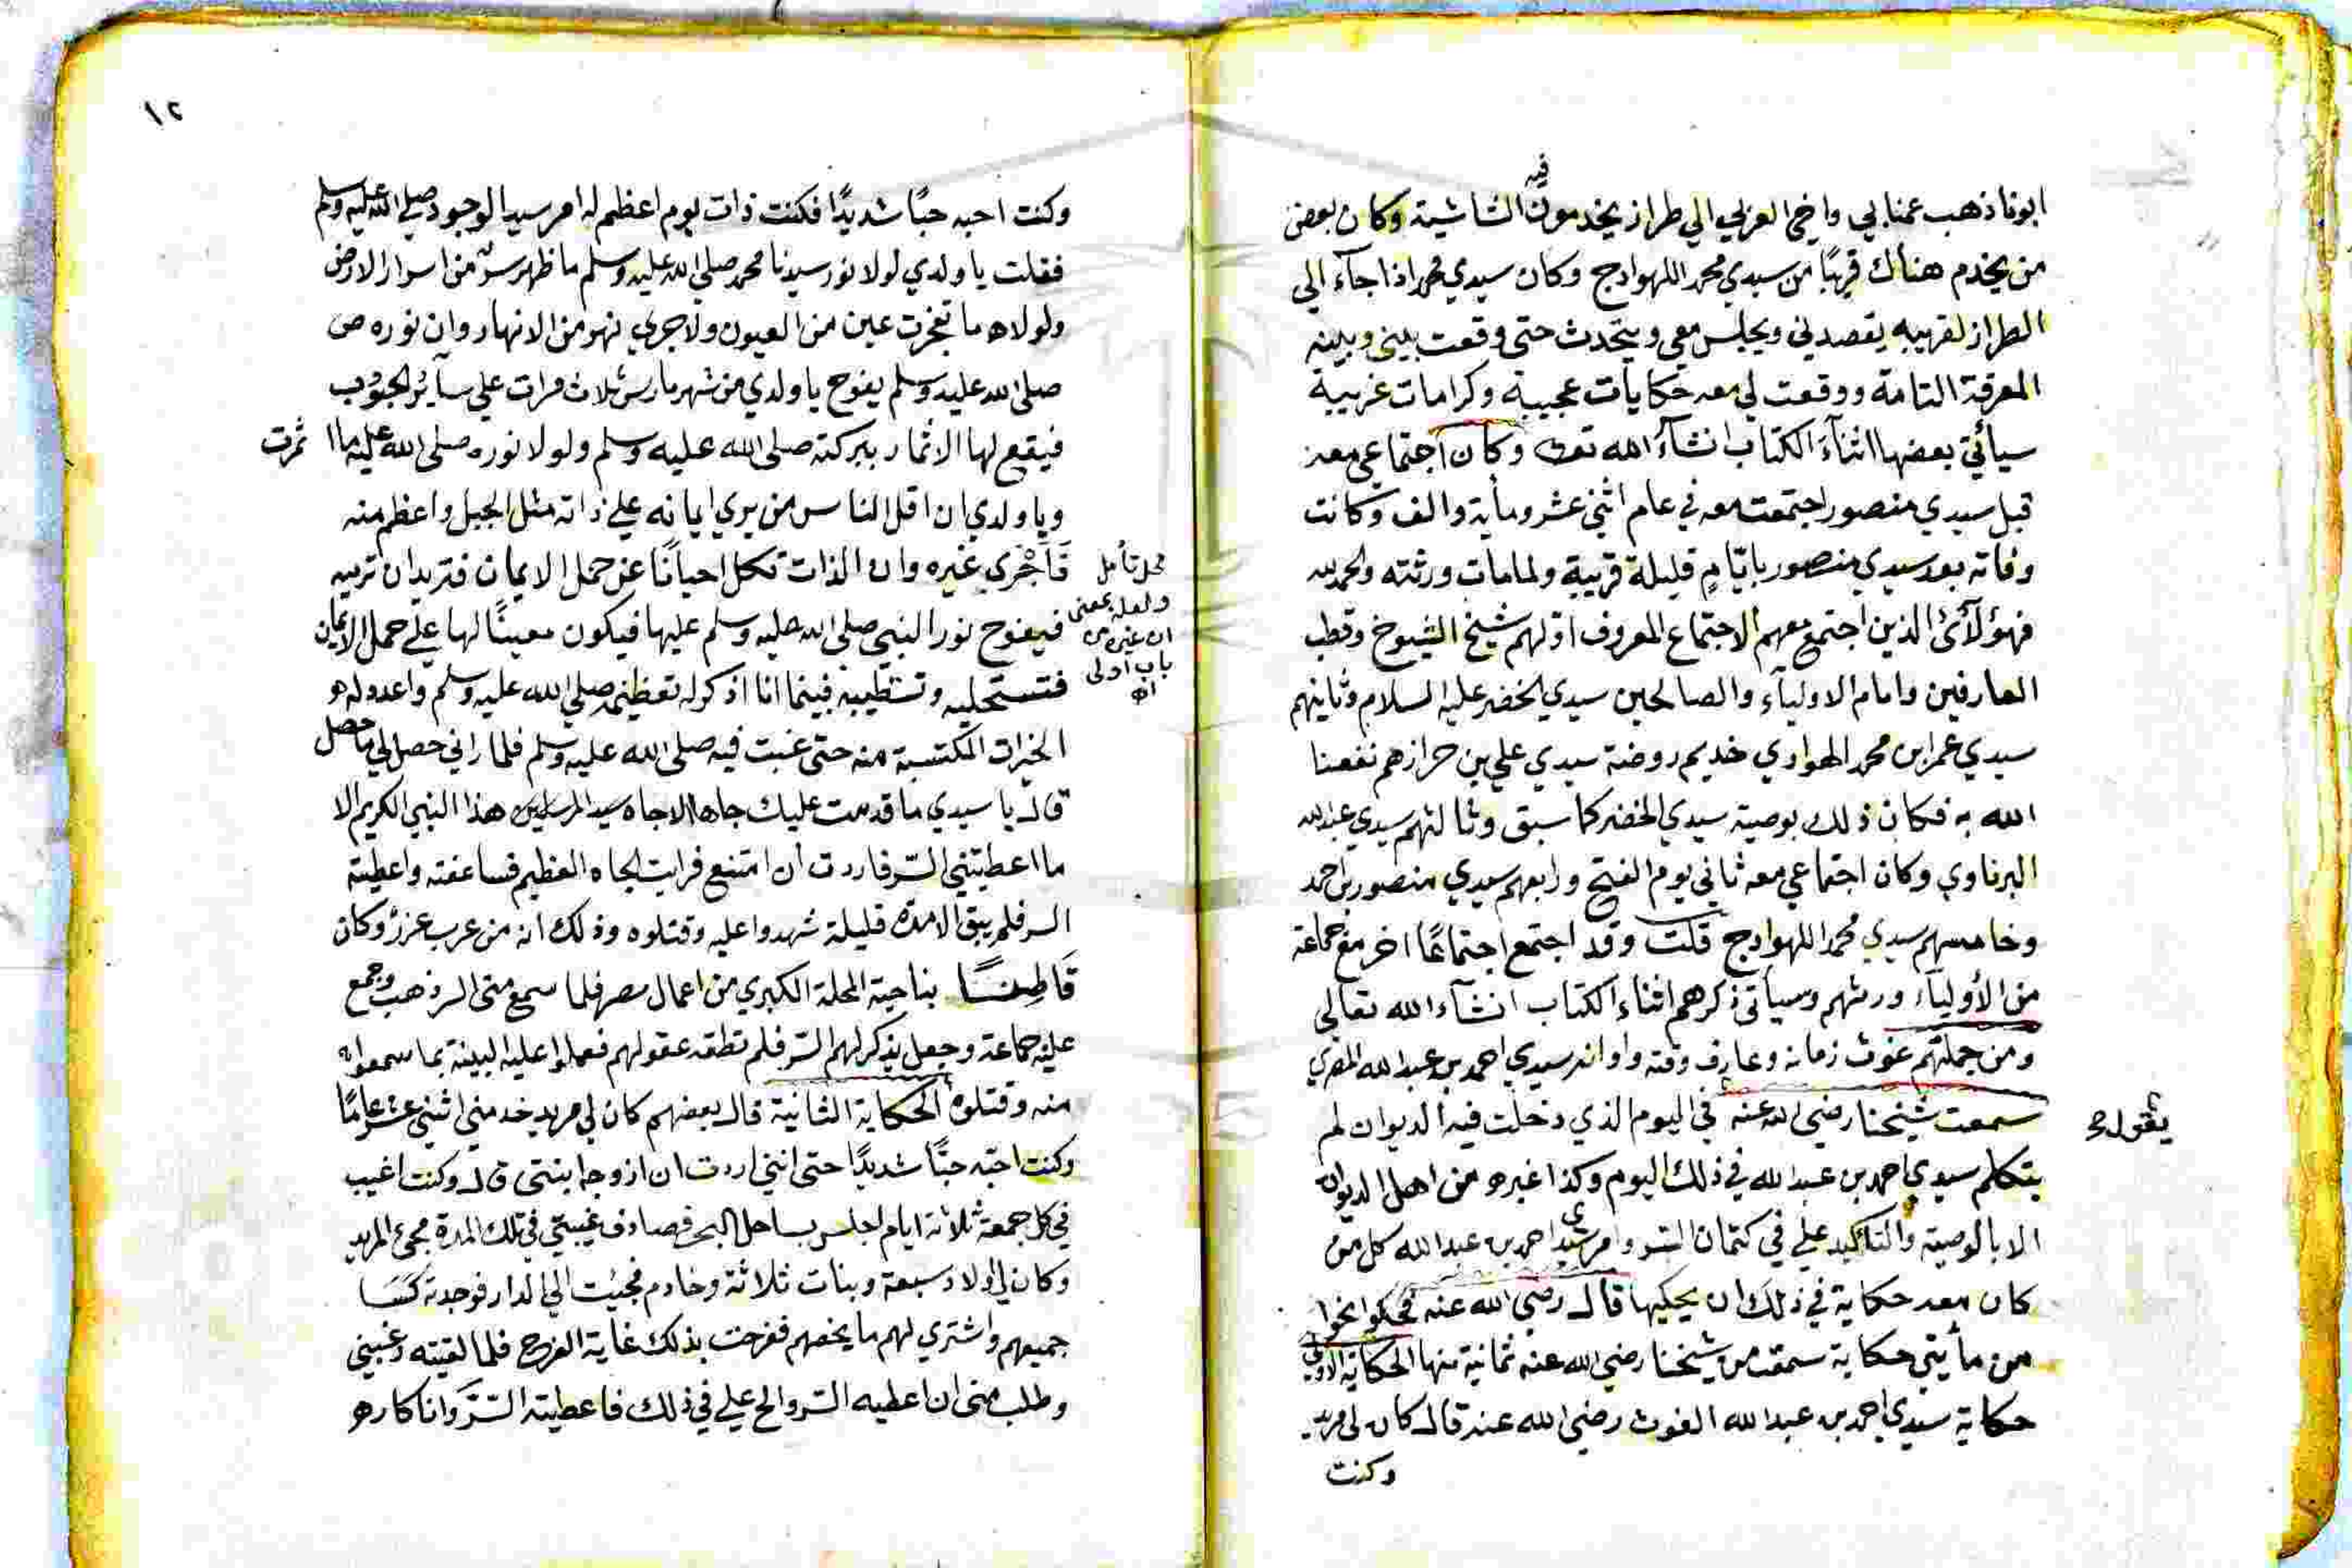 فيه
ابونا ذهب عمنا بي واخي العربي الي طراز يخدمون الشاشية وكان بعض
من يخدم هناك قريبًا من سيدي محمد اللهواج وكان سيدي محمد اذا جآء الي
الطراز لقريبه يقصدني ويجلس معي ويتحدث حتى وقعت بيني وبينه
المعرفة التامة ووقعت لي معه حكايات عجيبة وكرامات غريبة
سيأتي بعضها اثنآء الكتاب انشآء الله تعالى وكان اجتماعي معه
قبل سيدي منصور اجتمعت معه في عام اثني عشر ومأية والف وكانت
وفاته بعد سيدي منصور بايّامٍ قليلة قريبة ولما مات ورثته والحمد لله
فهؤلآئ الذين اجتمع معهم الاجتماع المعروف اولهم شيخ الشيوخ وقطب
العارفين وامام الاوليآء والصالحين سيدي الخضر عليه السلام وثانيهم
سيدي عمر ابن محمد الهواري خديم روضة سيدي علي بن حرازهم نفعنا
الله به فكان ذلك بوصية سيدي الخضر كما سبق وثالثهم سيدي عبد الله
البرناوي وكان اجتماعي معه ثاني يوم الفتح ورابعهم سيدي منصور بن احمد
وخامسهم سيدي محمد اللهواج قلت وقد اجتمع اجتماعًا اخر مع جماعة
من الأوليآء ورثهم وسيأتي ذكرهم اثناء الكتاب انشآء الله تعالي
ومن جملتهم غوث زمانه وعارف وقته واوانه سيدي احمد بن عبد الله المصري
سمعت شيخنا رضي الله عنه في اليوم الذي دخلت فيه الديوان لم
يقول
يتكلم سيدي احمد بن عبد الله في ذلك اليوم وكذا غيره من اهل الديوان
الا بالوصية والتأكيد علي في كتمان السر وامر سيدي احمد بن عبد الله كل من
كان معه حكاية في ذلك ان يحكيها قال رضي الله عنه فحكوا نحوا
من مأيتي حكاية سمعت من شيخنا رضي الله عنه ثمانية منها الحكاية الاولي
حكاية سيدي احمد بن عبد الله الغوث رضي الله عنه قال كان لي مريد
وكنت
١٢
وكنت احبه حبًا شديدًا فكنت ذات يوم اعظم له امر سيد الوجود صلي الله عليه وسلم
فقلت يا ولدي لولا نور سيدنا محمد صلي الله عليه وسلم ما ظهر سر من اسرار الارض
ولولاه ما تفجرت عين من العيون ولا جري نهر من الانهار وان نوره ص
صلى الله عليه وسلم يفوح يا ولدي من شهر مارس ثلاث مرات علي سآير الحبوب
فيقع لها الاثمار ببركته صلى الله عليه وسلم ولولا نوره صلى الله عليه ما اثمرت
ويا ولدي ان اقل الناس من يري ايمانه علي ذاته مثل الجبل واعظم منه
فأحري غيره وان الذات تكل احيانًا عن حمل الايمان فتريد ان ترميه
محل تأمل
ولعله بمعنى
ان غيره من
باب اولى
اه
فيفوح نور النبي صلي الله عليه وسلم عليها فيكون معينًا لها علي حمل الايمان
فتستحليه وتستطيبه فبينما انا اذكر له تعظيمه صلي الله عليه وسلم واعدد له
الخيرات المكتسبة منه حتى غبت فيه صلى الله عليه وسلم فلما راني حصل لي ما حصل
قال يا سيدي ما قدمت عليك جاها الا جاه سيد المرسلين هذا النبي الكريم الا
ما اعطيتني السر فاردت ان امتنع فرايت الجاه العظيم فساعفته واعطيته
السر فلم يبق الا مدة قليلة شهدوا عليه وقتلوه وذلك انه من عرب عزز وكان
قاطنًا بناحية المحلة الكبري من اعمال مصر فلما سمع مني السر ذهب وجمع
عليه جماعة وجعل يذكر لهم السر فلم تطقه عقولهم فعملوا عليه البينة بما سمعوا
منه وقتلوه الحكاية الثانية قال بعضهم كان لي مريد خدمني اثني عشر عامًا
وكنت احبّه حبًّا شديدًا حتى انني اردت ان ازوجه ابنتي قال وكنت اغيب
في كل جمعة ثلاثة ايام اجلس بساحل البحر فصادف غيبتي في تلك المدة مجئ المريد
وكان لي اولاد سبعة وبنات ثلاثة وخادم فجيئت الي الدار فوجدته كسا
جميعهم واشتري لهم ما يخصهم ففرحت بذلك غاية الفرح فلما لقيته رغبني
وطلب مني ان اعطيه السر والح علي في ذلك فاعطيته السرّ وانا كاره